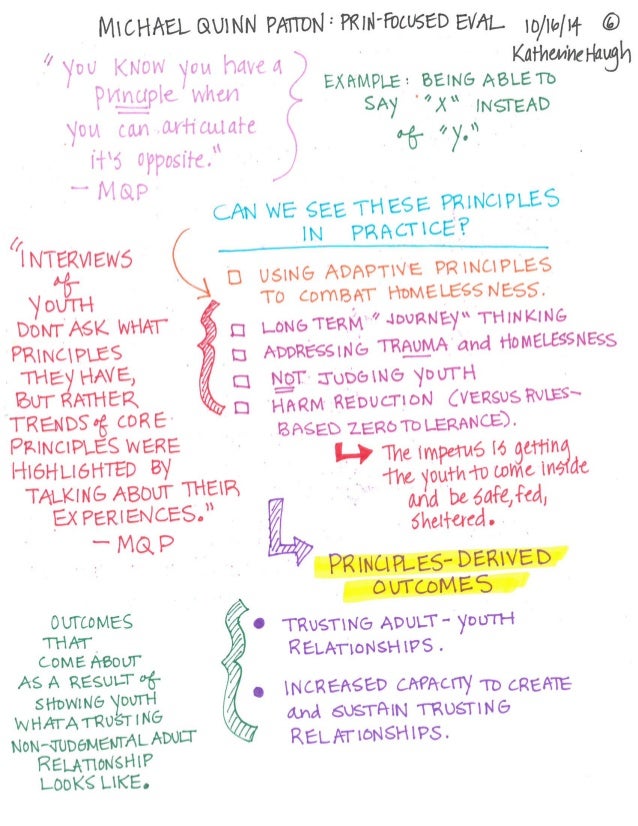 MICHAEL QUINN PATTON: PRIN-FOCUSED EVAL 10/16/14 6
Katherine Haugh
"You KNOW you have a
principle when
you can articulate
it's opposite."
— MQP
EXAMPLE: BEING ABLE TO
SAY "X" INSTEAD
of "Y."
CAN WE SEE THESE PRINCIPLES
IN PRACTICE?
USING ADAPTIVE PRINCIPLES
TO COMBAT HOMELESSNESS.
LONG TERM "JOURNEY" THINKING
ADDRESSING TRAUMA and HOMELESSNESS
NOT JUDGING YOUTH
HARM REDUCTION (VERSUS RULES-
BASED ZERO TOLERANCE).
The impetus is getting
the youth to come inside
and be safe, fed,
sheltered.
"INTERVIEWS
of
YOUTH
DONT ASK WHAT
PRINCIPLES
THEY HAVE,
BUT RATHER
TRENDS of CORE
PRINCIPLES WERE
HIGHLIGHTED BY
TALKING ABOUT THEIR
EXPERIENCES."
— MQP
PRINCIPLES-DERIVED
OUTCOMES
TRUSTING ADULT-YOUTH
RELATIONSHIPS.
INCREASED CAPACITY TO CREATE
and SUSTAIN TRUSTING
RELATIONSHIPS.
OUTCOMES
THAT
COME ABOUT
AS A RESULT of
SHOWING YOUTH
WHAT A TRUSTING
NON-JUDGMENTAL ADULT
RELATIONSHIP
LOOKS LIKE.